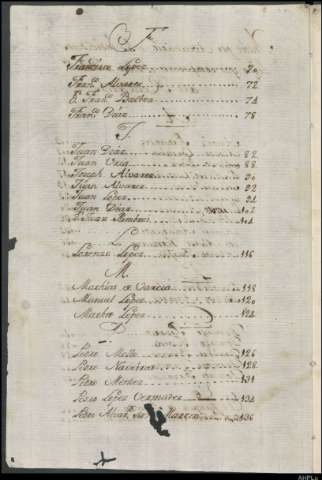 F.
Francisco Lopez 70
Fran.co Alvarez 72
D. Fran.co Bueltra 74
Fran.co Diaz 78
J.
Juan Diaz 82
Juan Orcq 88
Joseph Alvarez 90
Juan Alvarez 92
Juan Lopez 94
Juan Diaz 102
Juan Ximenez 104
L
Lorenzo Lopez 116
M.
Mathias de Garcia 118
Manuel Lopez 120
Martin Lopez 124
P
Pedro Melle 126
Pedro Naveiras 128
Pedro Mendez 131
Pedro Lopez 134
Pedro Alvar.z 136
AHPLu